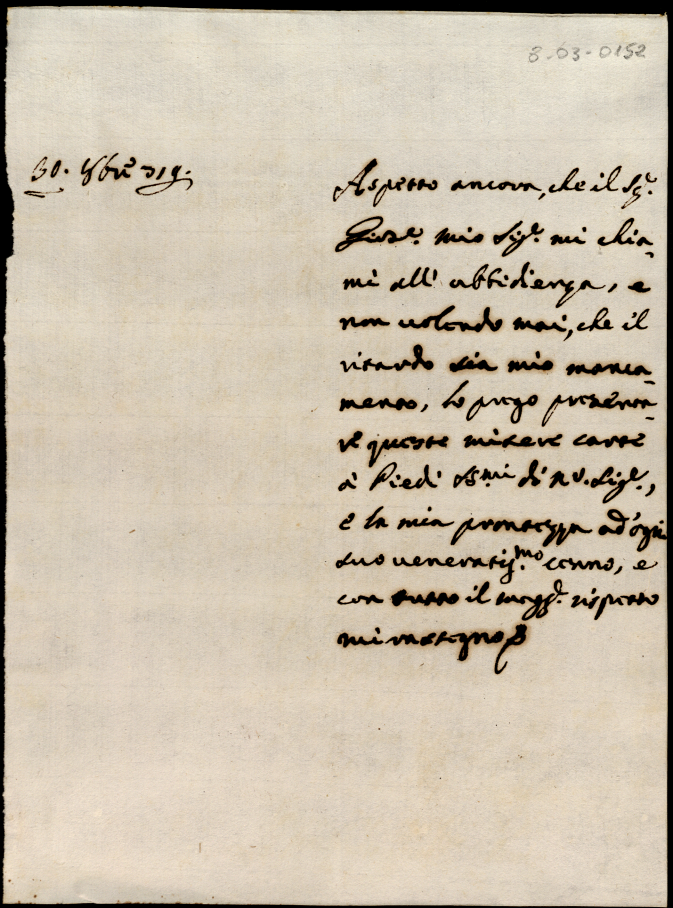 8-03-0152
30. 9bre 719.
Aspetto ancora, che il Sigr.
mio Sigr. mi chia-
mi all' ubbidienza, e
non volendo mai, che il
ritardo sia mio manca-
mento, lo prego presenta-
re queste misere carte
à Piedi SSmi di N. Sigre.,
e la mia prontezza ad ogni
suo veneratismo cenno, e
con tutto il maggr. rispetto
mi rassegno